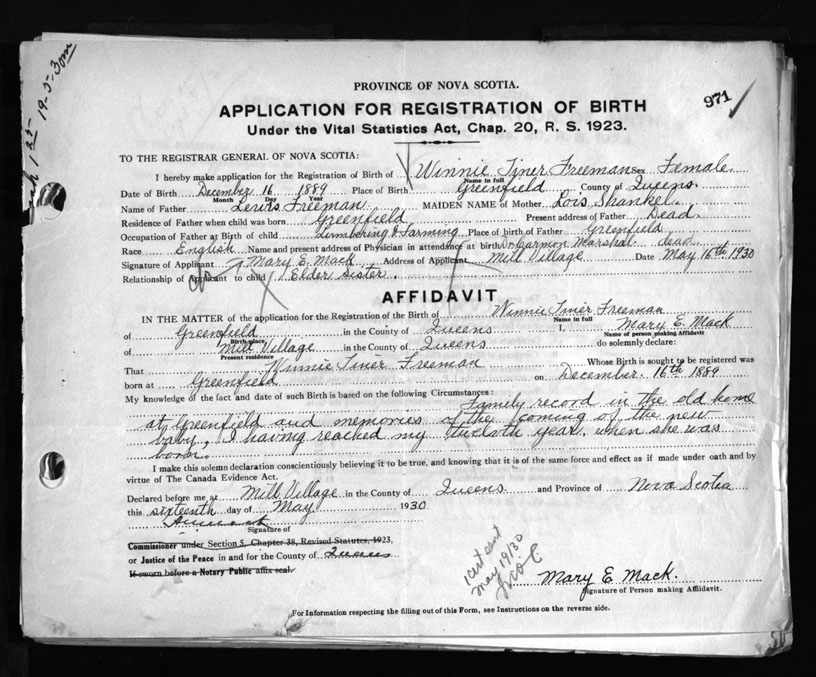 19-5-30
971
PROVINCE OF NOVA SCOTIA.
APPLICATION FOR REGISTRATION OF BIRTH
Under the Vital Statistics Act, Chap. 20, R. S. 1923.
TO THE REGISTRAR GENERAL OF NOVA SCOTIA:
I hereby make application for the Registration of Birth of Winnie Tiner Freeman Sex Female
Name in full
Date of Birth December 16 1889 Place of Birth Greenfield County of Queens
Month Day Year
Name of Father Lewis Freeman MAIDEN NAME of Mother Lois Shankel
Residence of Father when child was born Greenfield Present address of Father Dead
Occupation of Father at Birth of child Lumbering & Farming Place of birth of Father Greenfield
Race English Name and present address of Physician in attendance at birth Dr Carmon Marshal dead
Signature of Applicant Mary E. Mack Address of Applicant Mill Village Date May 16th 1930
Relationship of Applicant to child Elder Sister.
AFFIDAVIT
IN THE MATTER of the application for the Registration of the Birth of Winnie Tiner Freeman
Name in full
of Greenfield in the County of Queens I, Mary E. Mack
Birth place Name of person making Affidavit
of Mill Village in the County of Queens do solemnly declare:
Present residence
That Winnie Tiner Freeman Whose Birth is sought to be registered was
born at Greenfield on December 16th 1889
My knowledge of the fact and date of such Birth is based on the following Circumstances: Family record in the old home
at Greenfield and memories of the coming of the new
baby, I having reached my twelfth year, when she was
born.
I make this solemn declaration conscientiously believing it to be true, and knowing that it is of the same force and effect as if made under oath and by
virtue of The Canada Evidence Act.
Declared before me at Mill Village in the County of Queens and Province of Nova Scotia
this sixteenth day of May 1930
Signature of
Commissioner under Section 5, Chapter 38, Revised Statutes, 1923,
or Justice of the Peace in and for the County of Queens
If sworn before a Notary Public affix seal.
Cert sent
May 19/30
Mary E Mack.
Signature of Person making Affidavit.
For Information respecting the filling out of this Form, see Instructions on the reverse side.